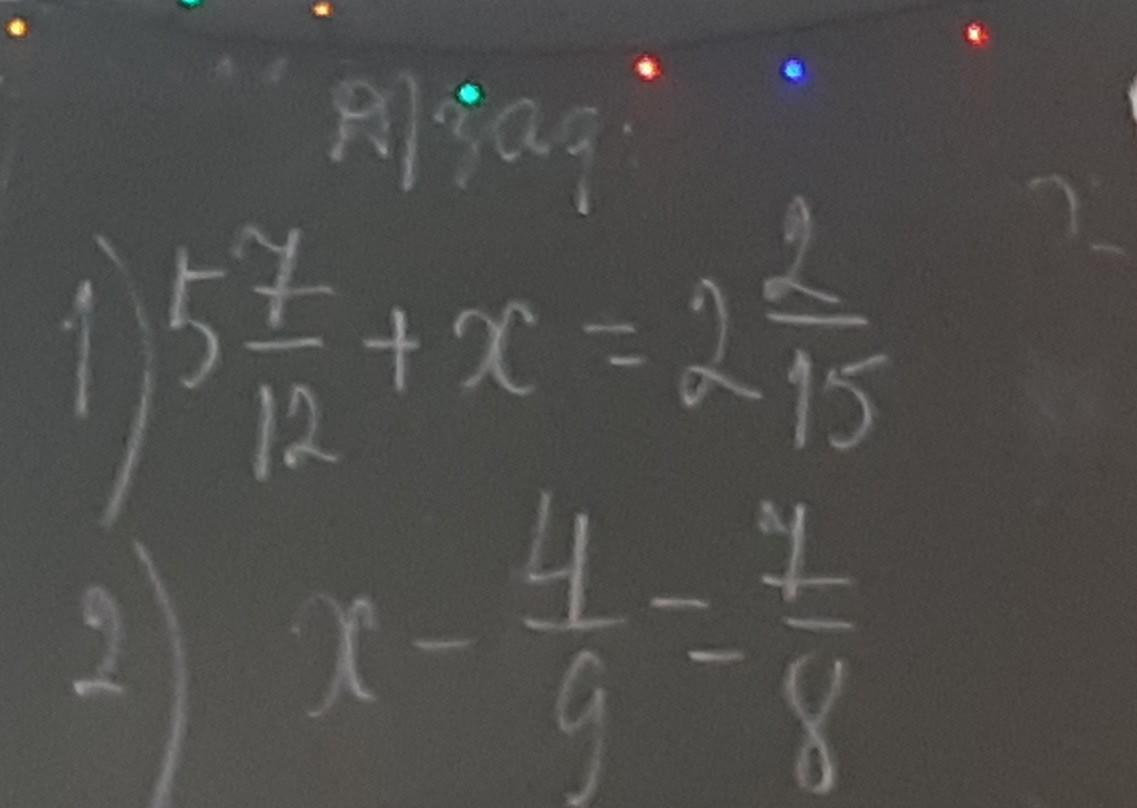 Д/зад.
1) 5 7/12 + x = 2 2/15
2) x - 4/9 = 7/8